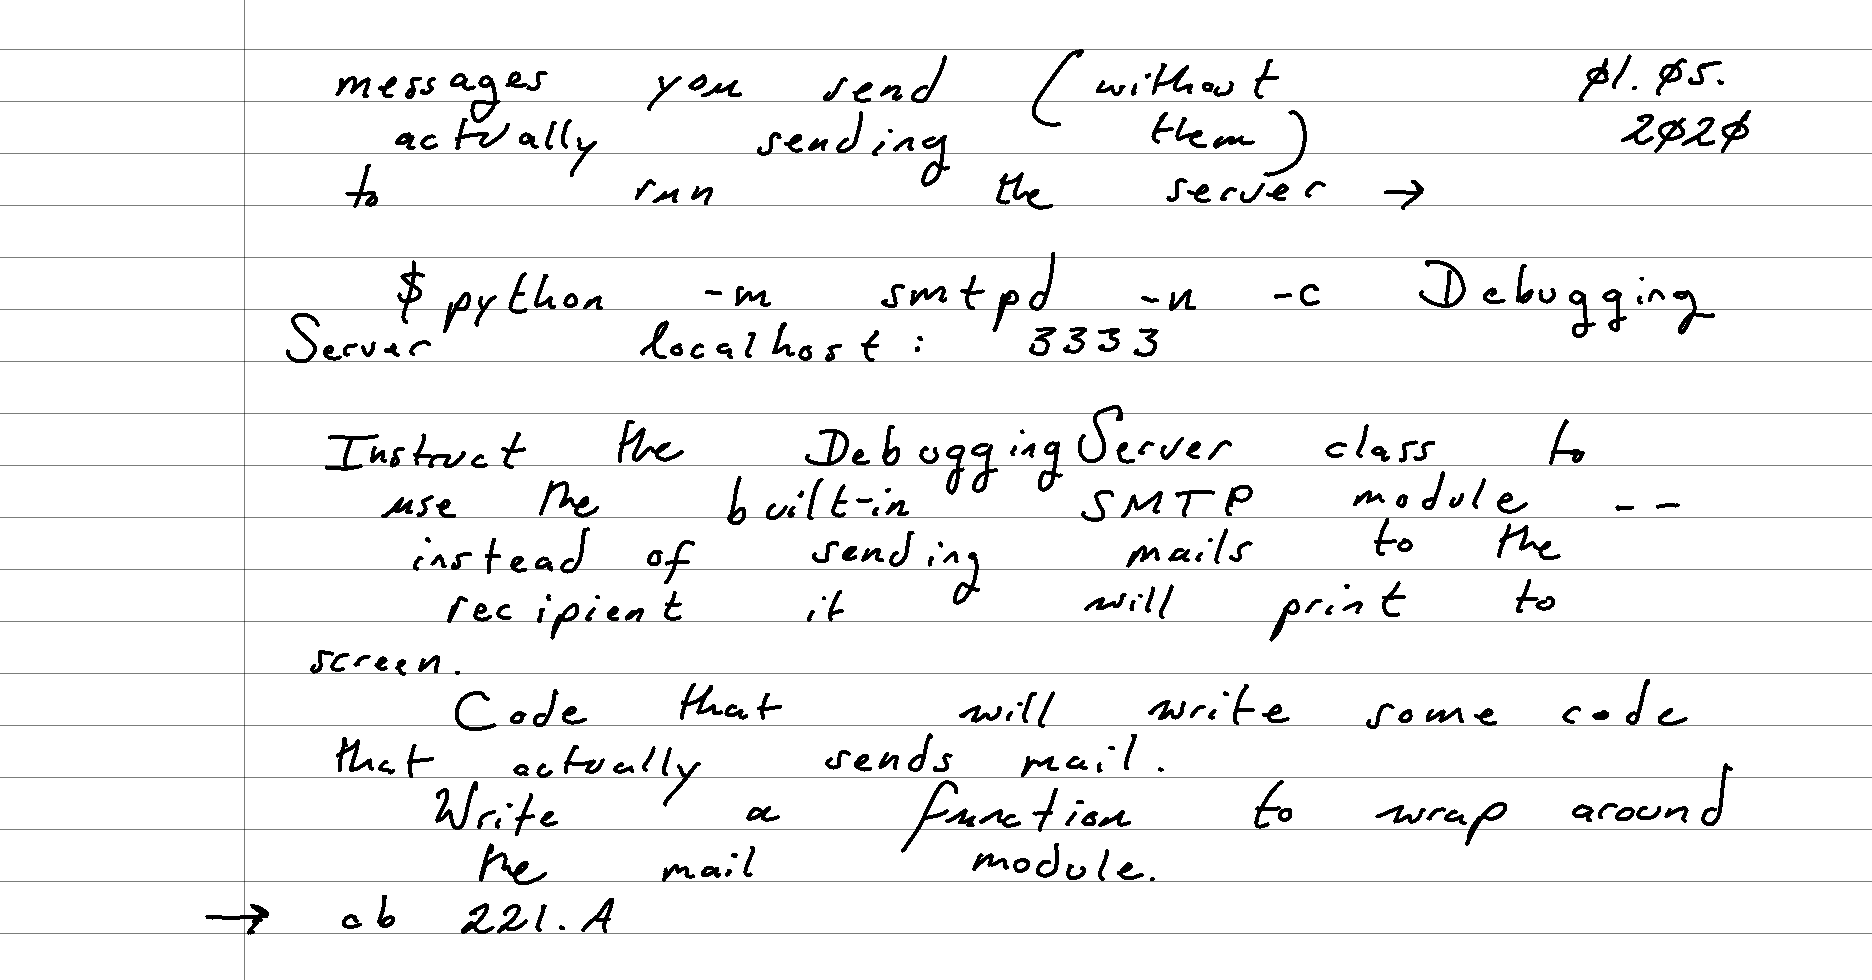 messages you send (without 01.05.
actually sending them) 2020
to run the server →
$ python -m smtpd -n -c Debugging
Server localhost: 3333
Instruct the DebuggingServer class to
use the built-in SMTP module --
instead of sending mails to the
recipient it will print to
screen.
Code that will write some code
that actually sends mail.
Write a function to wrap around
the mail module.
→ cb 221.A